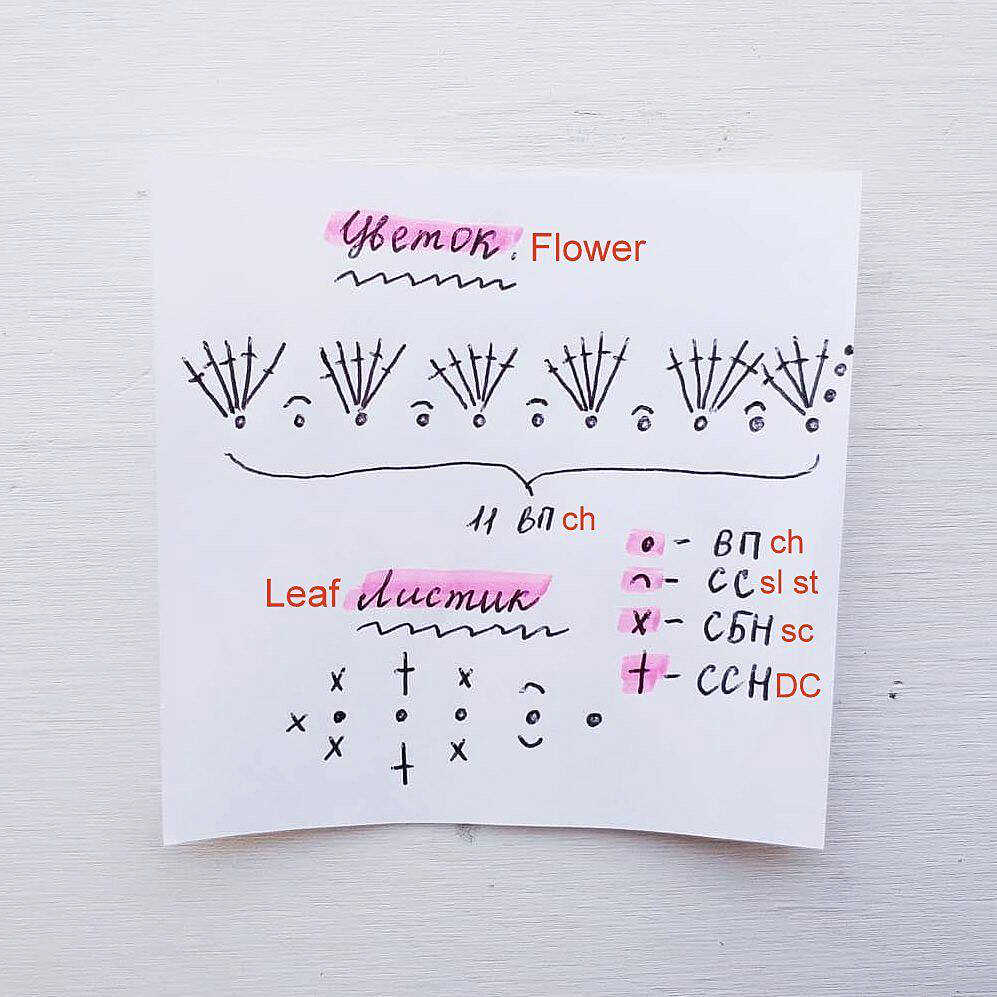 Цветок. Flower
11 ВП ch
• - ВП ch
⌒ - СС sl st
x - СБН sc
† - ССН DC
Leaf Листик